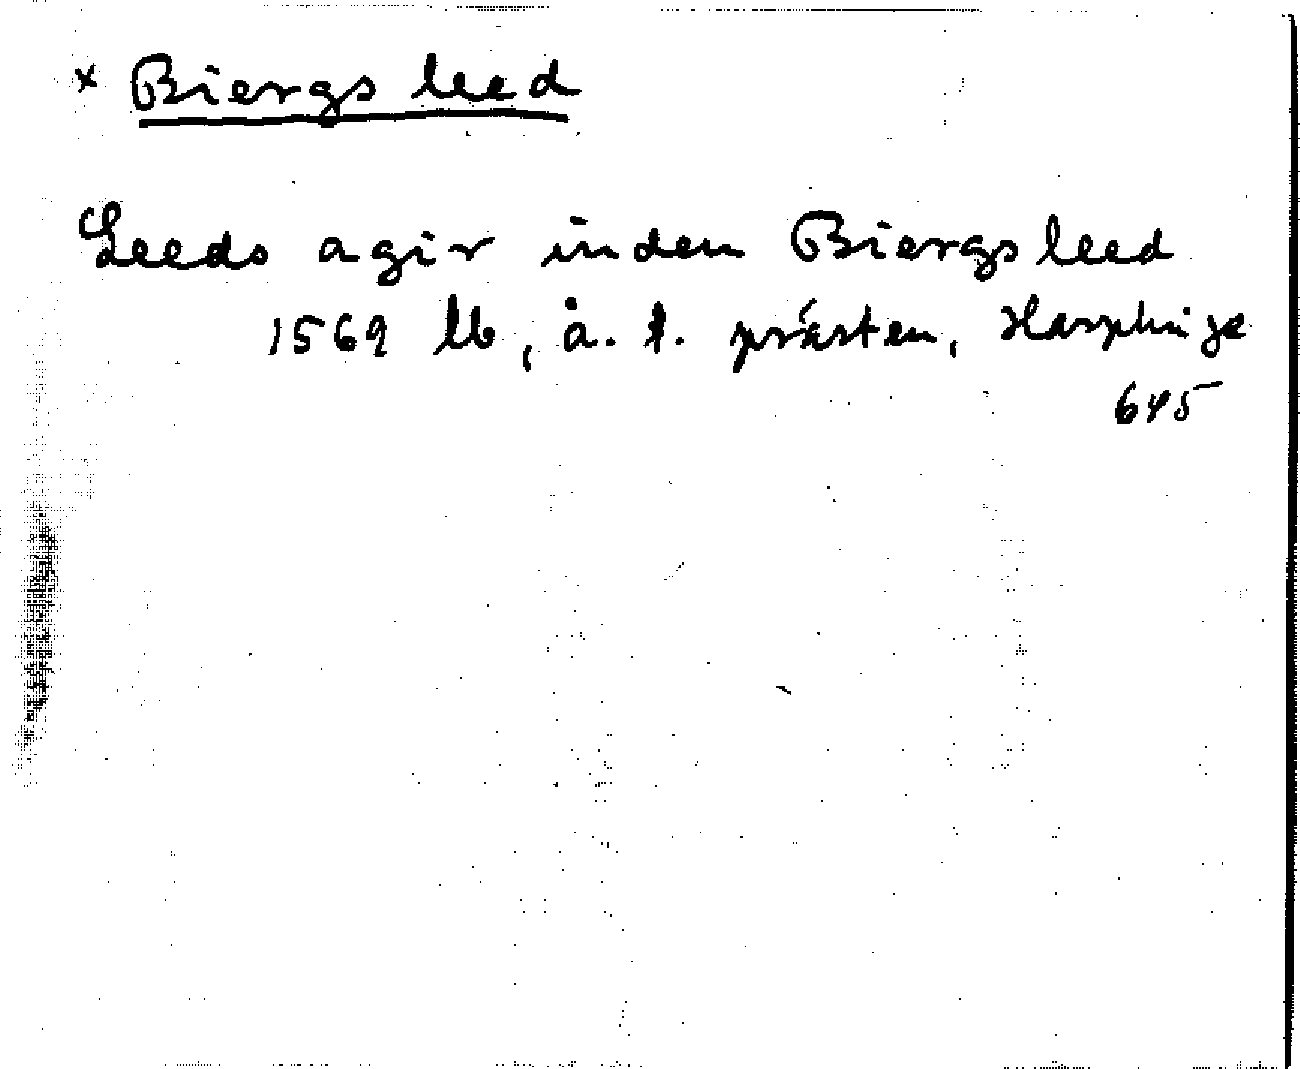 × Biergs leed
Leeds agir inden Biergs leed
1569 lb, å. t. prästen, Harplinge
645